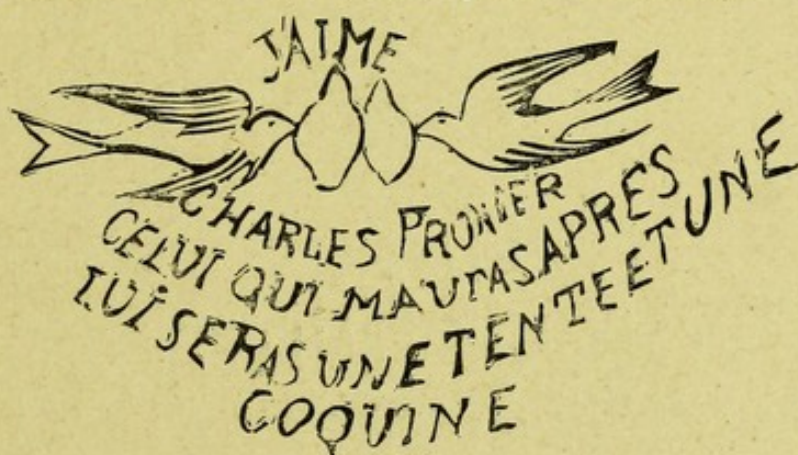 J'AIME
CHARLES PRONIER
CELUI QUI MAURAS APRES
LUI SERAS UNE TENTE ET UNE
COQUINE